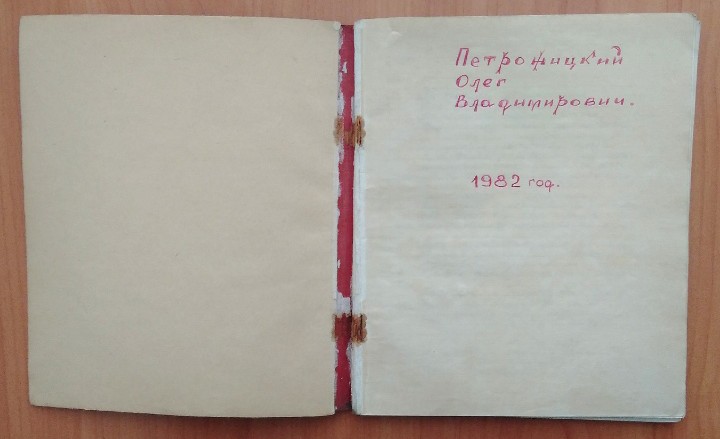 Петрожицкий
Олег
Владимирович.
1982 год.